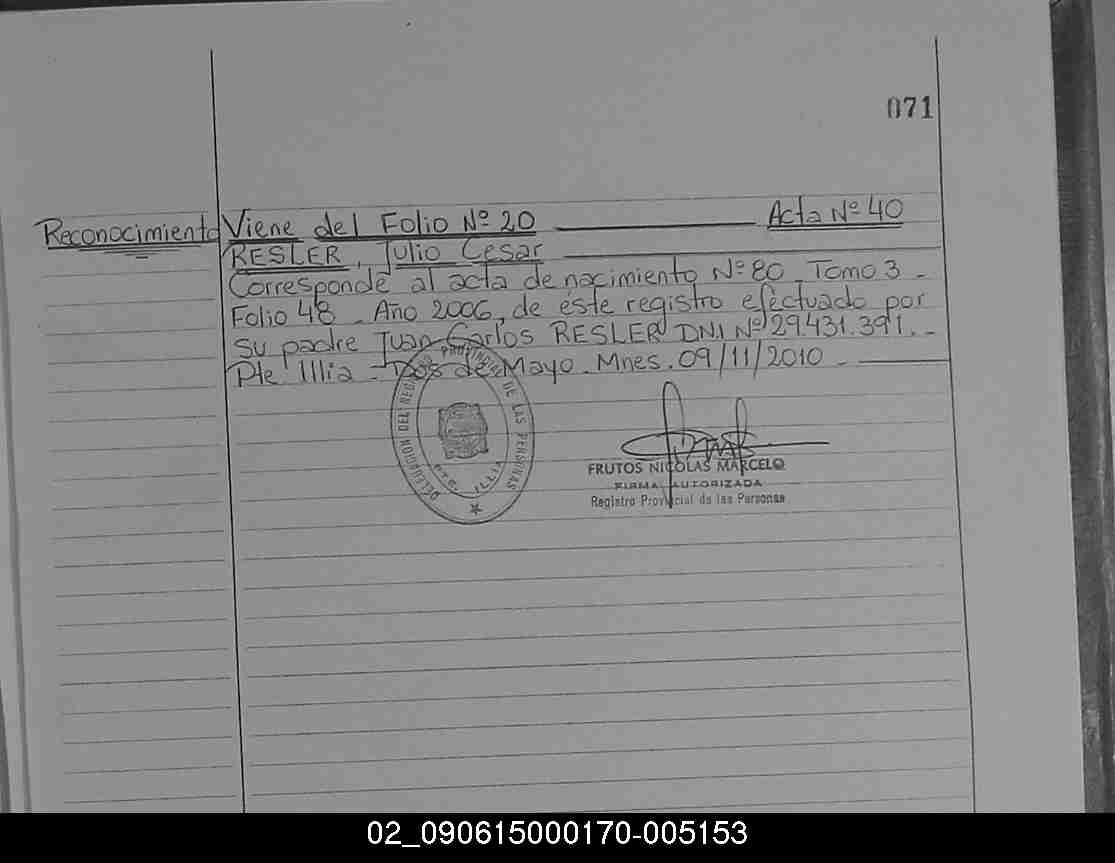 071
Reconocimiento Viene del Folio Nº 20 Acta Nº 40
RESLER, Julio Cesar
Corresponde al acta de nacimiento Nº 80 Tomo 3 -
Folio 48 - Año 2006, de éste registro efectuado por
su padre Juan Carlos RESLER DNI Nº 29.431.391. -
Pte Illia - Dos de Mayo. Mnes. 09/11/2010 -
DELEGACION DEL REGISTRO PROVINCIAL DE LAS PERSONAS
PTE. ILLIA
FRUTOS NICOLAS MARCELO
FIRMA AUTORIZADA
Registro Provincial de las Personas
02_090615000170-005153